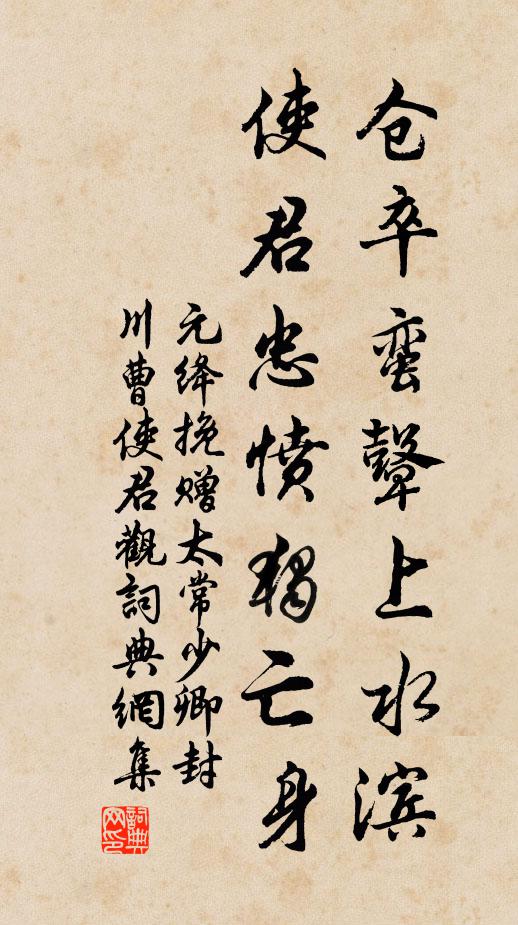 仓卒蛮鼙上水滨
使君忠愤独亡身
元绛挽赠太常少卿封
川曹使君觀詞典網集
詞典网印